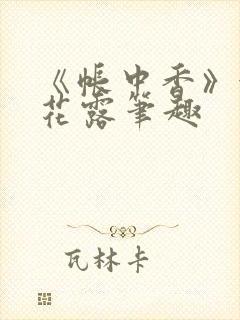 《帐中香》
花露笔趣
瓦林卡